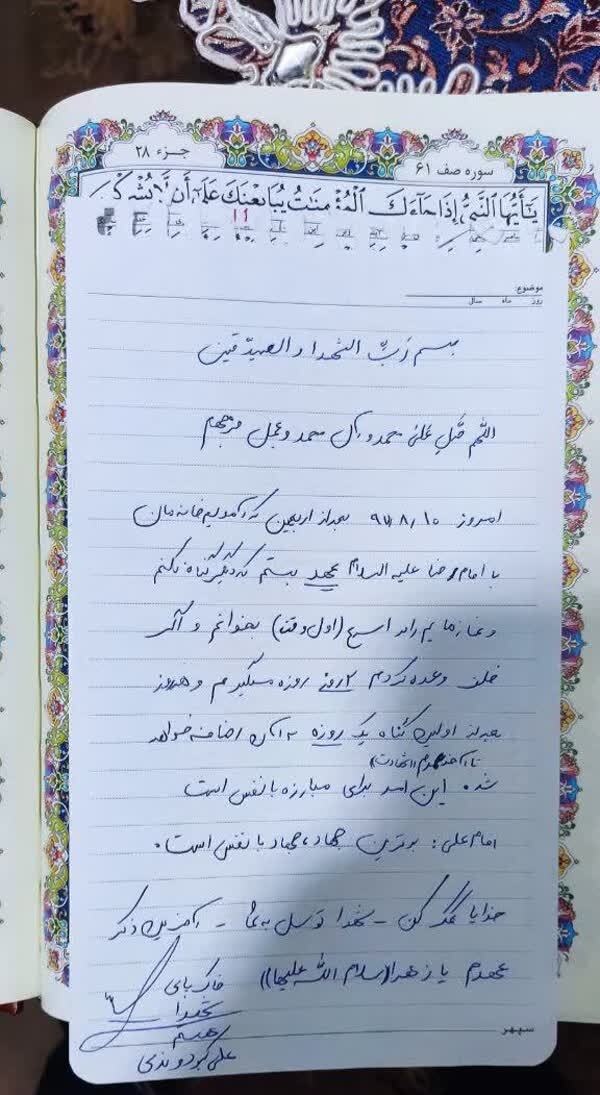 جـزء ۲۸
سوره صف ۶۱
يَـٰٓأَيُّهَا ٱلنَّبِىُّ إِذَا جَآءَكَ ٱلْمُؤْمِنَـٰتُ يُبَايِعْنَكَ عَلَىٰٓ أَن لَّا يُشْرِكْنَ
موضوع:
روز ماه سال
بسم رَبِّ الشهدا والصدیقین
اللهم صَلِّ عَلی محمد و آل محمد و عجل فرجهم
امروز ۹۷،۸،۱۰ بعد از اربعین که آمدیم خانه مان
با امام رضا علیه السلام عهد بستم که دیگر گناه نکنم
و نمازهایم را سر (اول وقت) بخوانم و اگر
خلف وعده کردم ۲ روز روزه میگیرم و هنوز
بعد از اولین گناه یک روزه به آن اضافه خواهد
تا آخر عمرم (شهادت)
شد این امر برای مبارزه با نفس است
امام علی: برترین جهاد، جهاد با نفس است.
خدایا کمک کن - شهدا توسل به شما - آخرین ذکر
عهدم یا زهرا (سلام الله علیها) خاک پای
شهدا
هستم
علی
سپهر